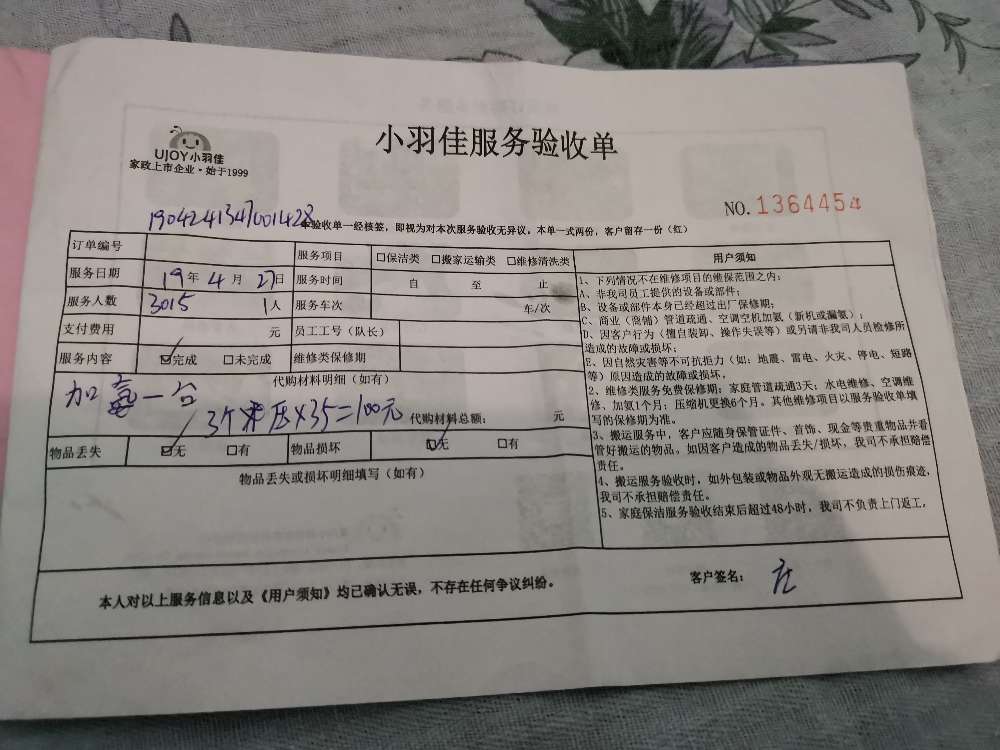 小羽佳服务验收单
UJOY小羽佳
家政上市企业·始于1999
NO. 1364454
1904241347001428
本验收单一经核签，即视为对本次服务验收无异议；本单一式两份，客户留存一份（红）
订单编号 服务项目 □保洁类 □搬家运输类 □维修清洗类
服务日期 19年4月27日 服务时间 自 至 止
服务人数 3015 1人 服务车次 车/次
支付费用 元 员工工号（队长）
服务内容 ☑完成 □未完成 维修类保修期
代购材料明细（如有）
加氟一台
3个 压×35=100元 代购材料总额： 元
物品丢失 ☑无 □有 物品损坏 ☑无 □有
物品丢失或损坏明细填写（如有）
用户须知
1、下列情况不在维修项目的维保范围之内：
A、非我司员工提供的设备或部件；
B、设备或部件本身已经超过出厂保修期；
C、商业（商铺）管道疏通、空调空机加氨（新机或漏氨）；
D、因客户行为（擅自装卸、操作失误等）或另请非我司人员检修所
造成的故障或损坏；
E、因自然灾害等不可抗拒力（如：地震、雷电、火灾、停电、短路
等）原因造成的故障或损坏。
2、维修类服务免费保修期：家庭管道疏通3天；水电维修、空调维
修、加氨1个月；压缩机更换6个月。其他维修项目以服务验收单填
写的保修期为准。
3、搬运服务中，客户应随身保管证件、首饰、现金等贵重物品并看
管好搬运的物品。如因客户造成的物品丢失/损坏，我司不承担赔偿
责任。
4、搬运服务验收时，如外包装或物品外观无搬运造成的损伤痕迹，
我司不承担赔偿责任。
5、家庭保洁服务验收结束后超过48小时，我司不负责上门返工。
本人对以上服务信息以及《用户须知》均已确认无误，不存在任何争议纠纷。
客户签名： 庄